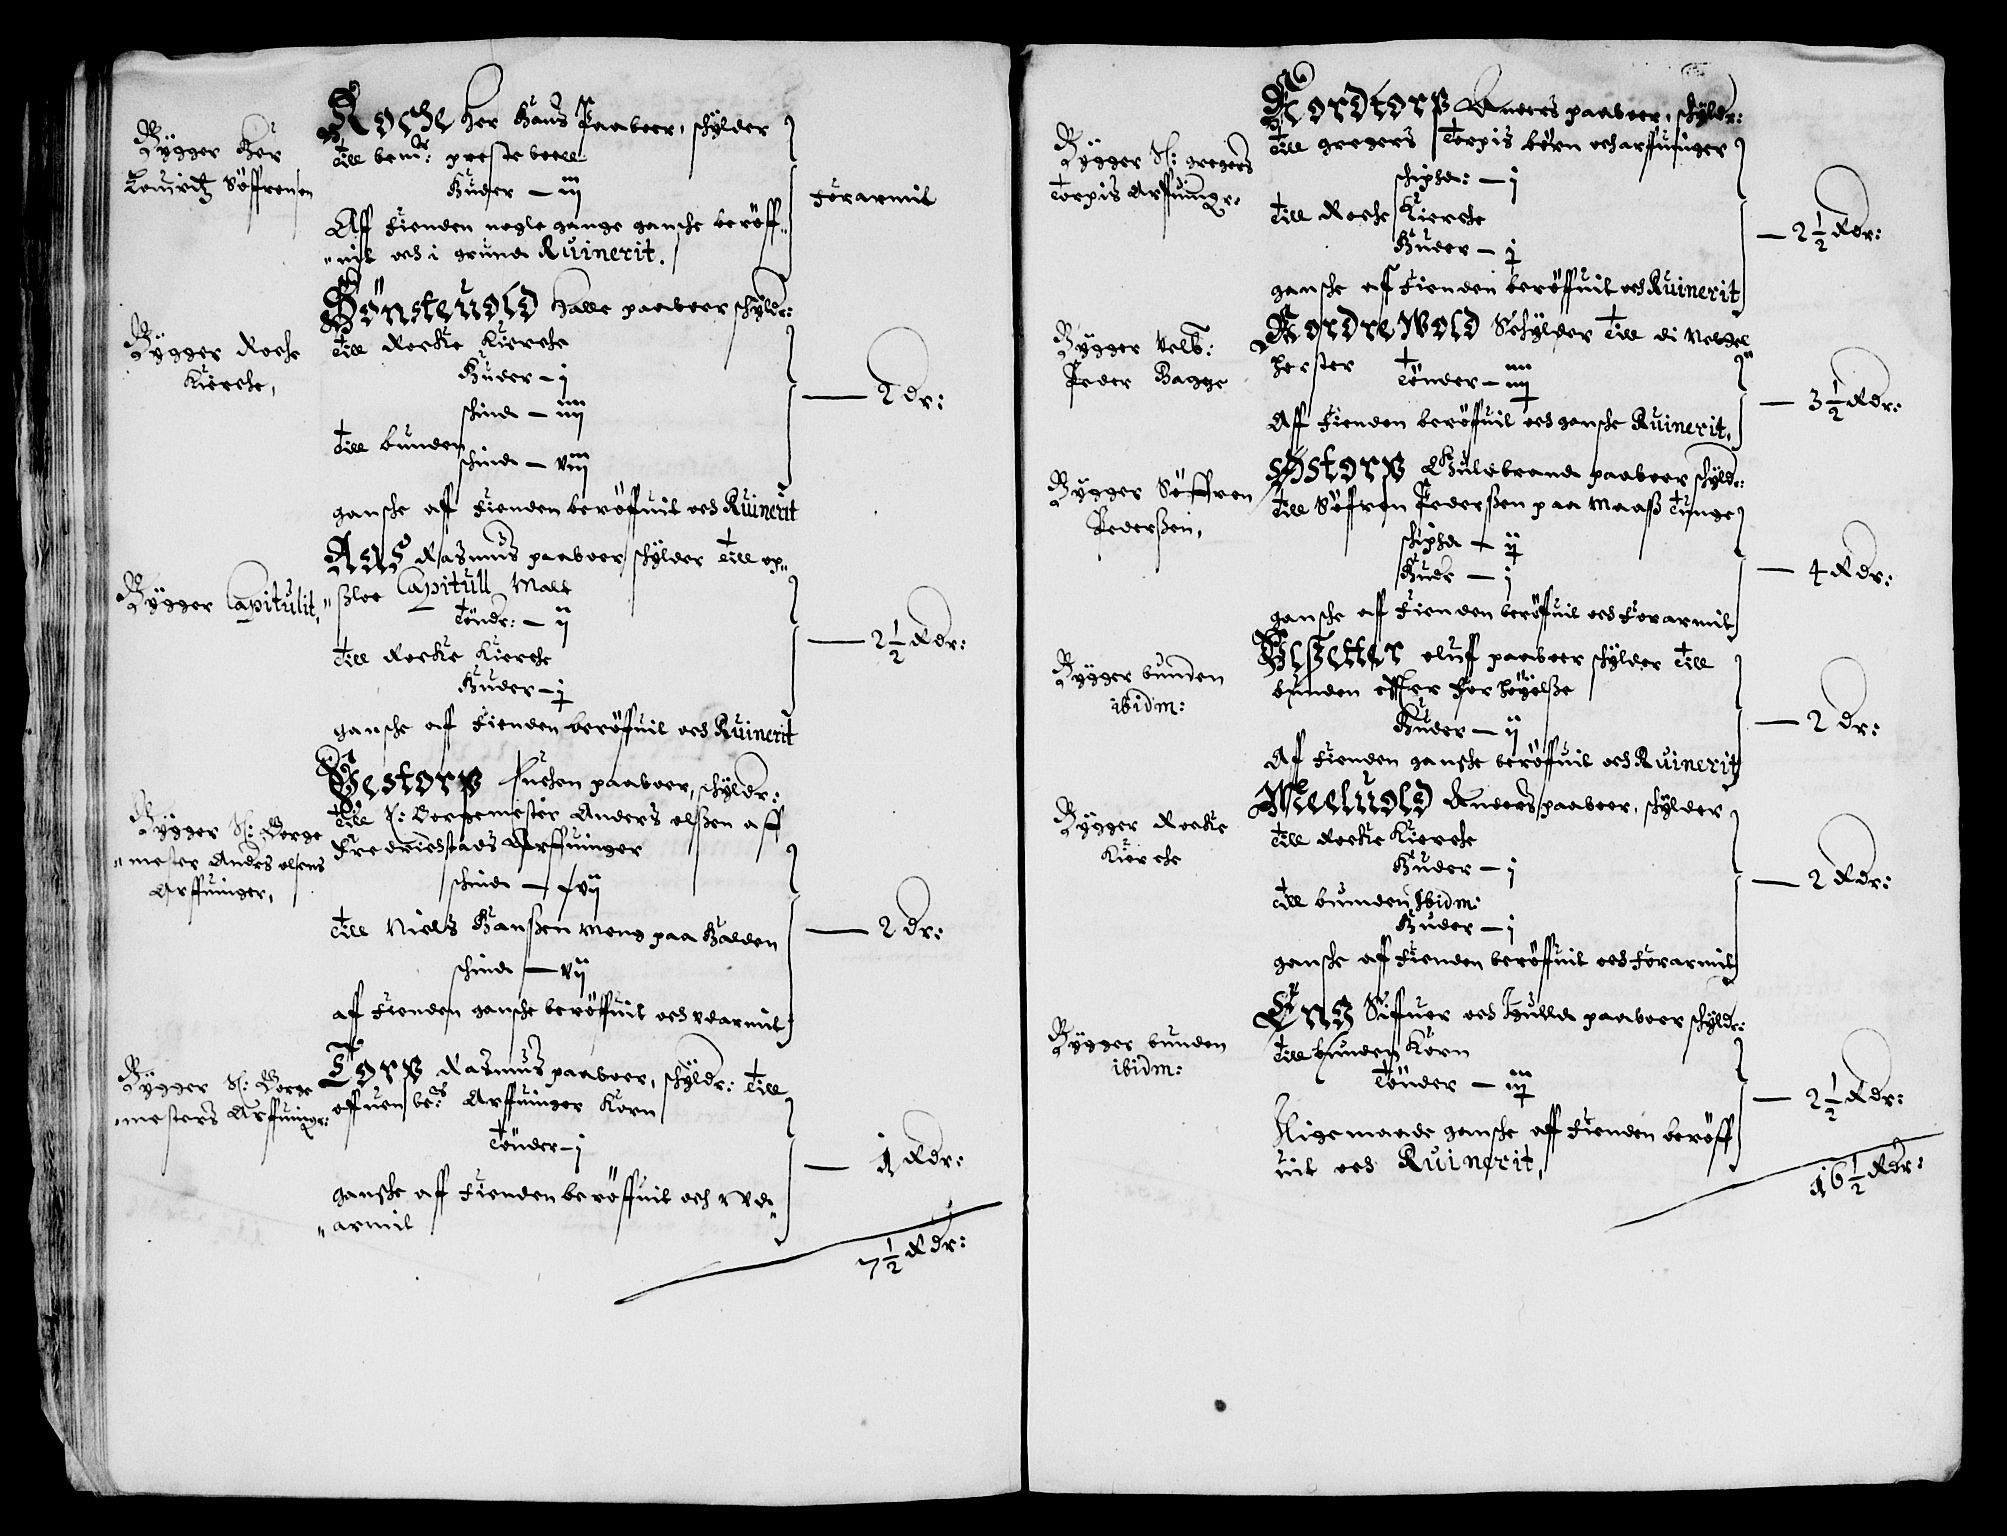 Bygger Her
Lauridtz Söffrensen
Rocke Her Hans Paaboer, schylder
Till bem:te preste boell
Huder — iij
Aff Fienden nogle gange gansche beröff„
„uit och i grund Ruinerit.
Forarmit
Bygger Rocke
Kiercke,
Hönsteuold Halle paaboer schyldr:
Till Rocke Kiercke
Huder — j
schind — iiij
Till bunden
schind — viij
gansche aff Fienden beröffuit och Ruinerit
— 2 dr:
Bygger Capitulit,
Aas Rasmus paaboer schylder Till op„
„ßloe Capitull Malt
Töndr: — ij
Till Rocke Kiercke
Huder — j
gansche aff Fienden beröffuit och Ruinerit
— 2½ Rdr:
Bygger Sl: Borge
„mester Anders olsens
Arffuinger,
Westorp paaboer, schyldr:
Till Sl: Borgemester Anders olßen aff
Fredrichstads Arffuinger
schind — vij
Till Niels Hanßen Meng paa Halden
schind — vij
aff Fienden gansche beröffuit och vdarmit
— 2 dr:
Bygger Sl: Borge
„mesters Arffuingr:
Torp Rasmus paaboer, schyldr: Till
offuen be:te Arffuinger Korn
Tönder — j
gansche aff Fienden beröffuit och vd„
„armit
— 1 Rdr:
7½ Rdr:
Bygger Sl: gregers
Torpis Arffuingr:
Nordtorp Anders paaboer, schyldr:
Till gregers Torpis börn och arffuinger
schipd: — j
Till Rocke Kiercke
Huder — j
gansche aff Fienden beröffuit och Ruinerit
— 2½ Rdr:
Bygger Velb:
Peder Bagge
Nordre Wold Schylder Till di
Tönder — iiij
Aff Fienden beröffuit och gansche Ruinerit,
— 3½ Rdr:
Bygger Söffren
Pederßen,
Østorp Gulbrand paaboer schyldr:
Till Söfren Pederßen paa Maaß Tunge
schipd — ij
Hudr — j
gansche aff Fienden beröffuit och Forarmit
— 4 Rdr:
Bygger bunden
ibidm:
oluf paaboer schylder Till
bunden effter Forhöyelße
Huder — ij
Af Fienden gansche beröffuit och Ruinerit
— 2 dr:
Bygger Rocke
Kiercke
Meeluold Anders paaboer, schylder
Till Rocke Kiercke
Huder — j
Till bunden Ibidm:
Huder — j
gansche aff Fienden beröffuit och Forarmit
— 2 Rdr:
Bygger bunden
ibidm:
Eng Siffuer och Gulld paaboer schyldr:
Till bunden Korn
Tönder — iij
Lige maade gansche aff Fienden beröff
uit och Ruinerit,
— 2½ Rdr:
16½ Rdr: